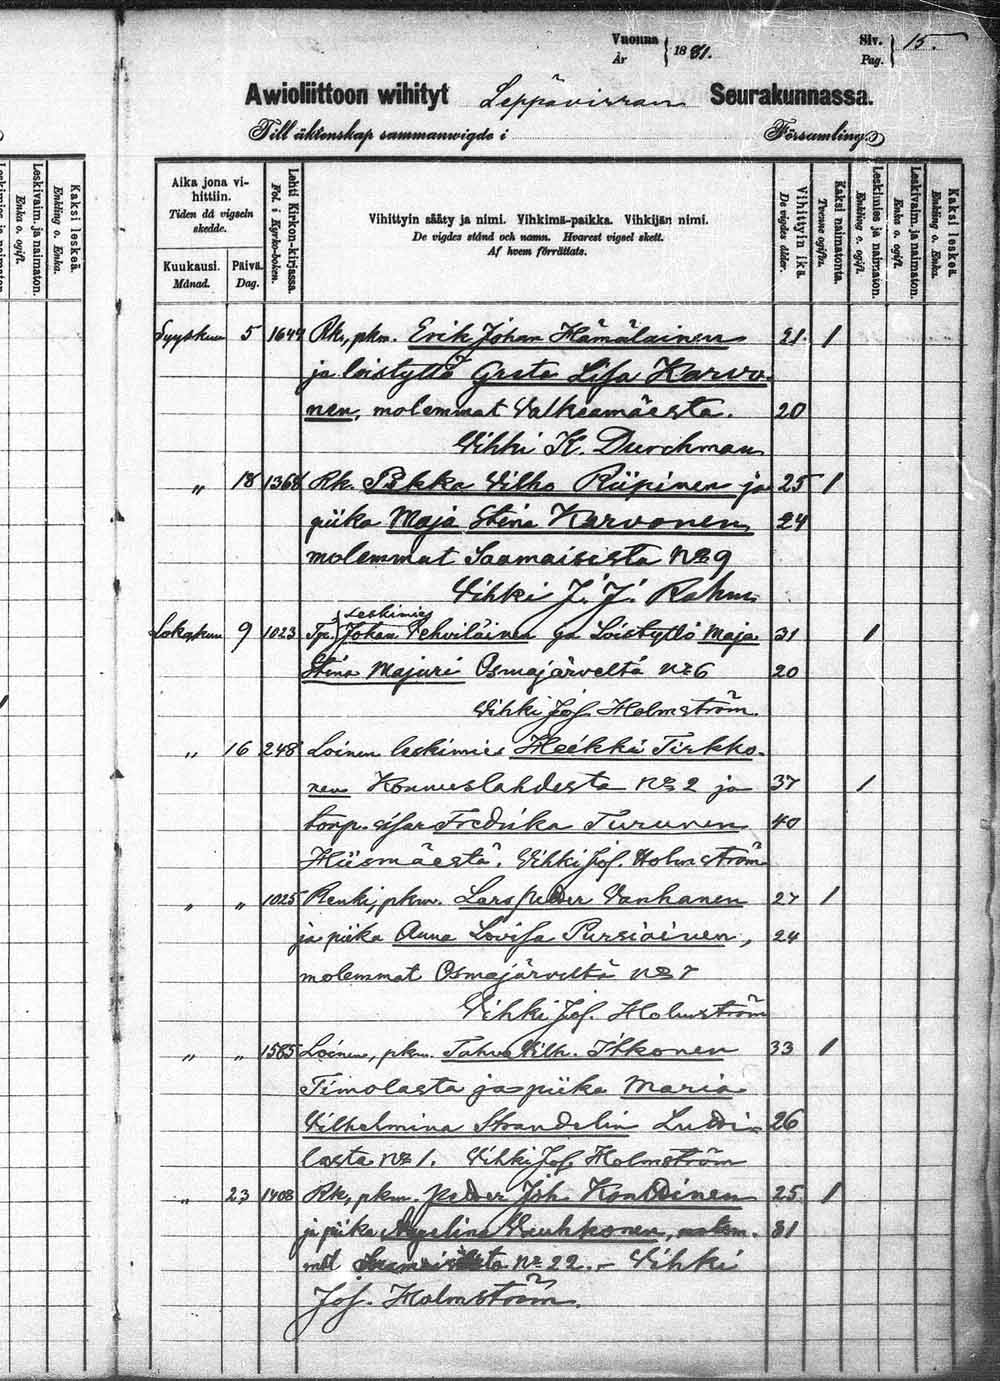 Vuonna
År
1881.
Siv.
Pag.
15.
Awioliittoon wihityt Leppävirran Seurakunnassa.
Till äktenskap sammanwigde i Församling.
Aika jona vi-
hittiin.
Tiden då vigseln
skedde.
Kuukausi.
Månad.
Päivä.
Dag.
Lehti Kirkon-kirjassa.
Fol. i Kyrko-boken.
Vihittyin sääty ja nimi. Vihkimä-paikka. Vihkijän nimi.
De vigdes stånd och namn. Hvarest vigsel skett.
Af hvem förrättats.
Vihittyin ikä.
De vigdes ålder.
Kaksi naimatonta.
Tvenne ogifta.
Leskimies ja naimaton.
Enkling o. ogift.
Leskivaim. ja naimaton.
Enka o. ogift.
Kaksi leskeä.
Enkling o. Enka.
Leskivaim. ja naimaton.
Enka o. ogift.
Kaksi leskeä.
Enkling o. Enka.
Syyskuu 5 1644 Rk, pkm. Erik Johan Hämäläinen 21. 1
ja loistyttö Greta Lisa Karvo-
nen, molemmat Valkeamäestä. 20
Vihki K. Durchman
" 18 1368 Rk. Pekka Vilho Riipinen ja 25 1
piika Maja Stina Karvonen 24
molemmat Saamaisista No 9
Vihki J. J. Rahm
leskimies
Lokakuu 9 1023 Johan Tehviläinen ja Loistyttö Maja 31 1
Stina Majuri Osmajärveltä No 6 20
Vihki Jos. Holmström.
" 16 248 Loinen leskimies Heikki Tirkko-
nen Konnuslahdesta No 2 ja 37 1
torp. sisar Fredrika Turunen 40
Hiismäestä. Vihki Jos. Holmström
" " 1025 Renki, pkm. Lars Peder Vanhanen 27 1
ja piika Anna Lovisa Pursiainen, 24
molemmat Osmajärveltä No 7
Vihki Jos. Holmström
" " 1585 Loinen, pkm. Tahvo Vilh. Ikkonen 33 1
Timolasta ja piika Maria
Vilhelmina Strandelin Luddi- 26
lasta No 1. Vihki Jos. Holmström
" 23 1408 Rk, pkm. Peder Joh. Kontinen 25. 1
ja piika Angelina Vauhkonen, molem- 31
mat No 22. - Vihki
Jos. Holmström.